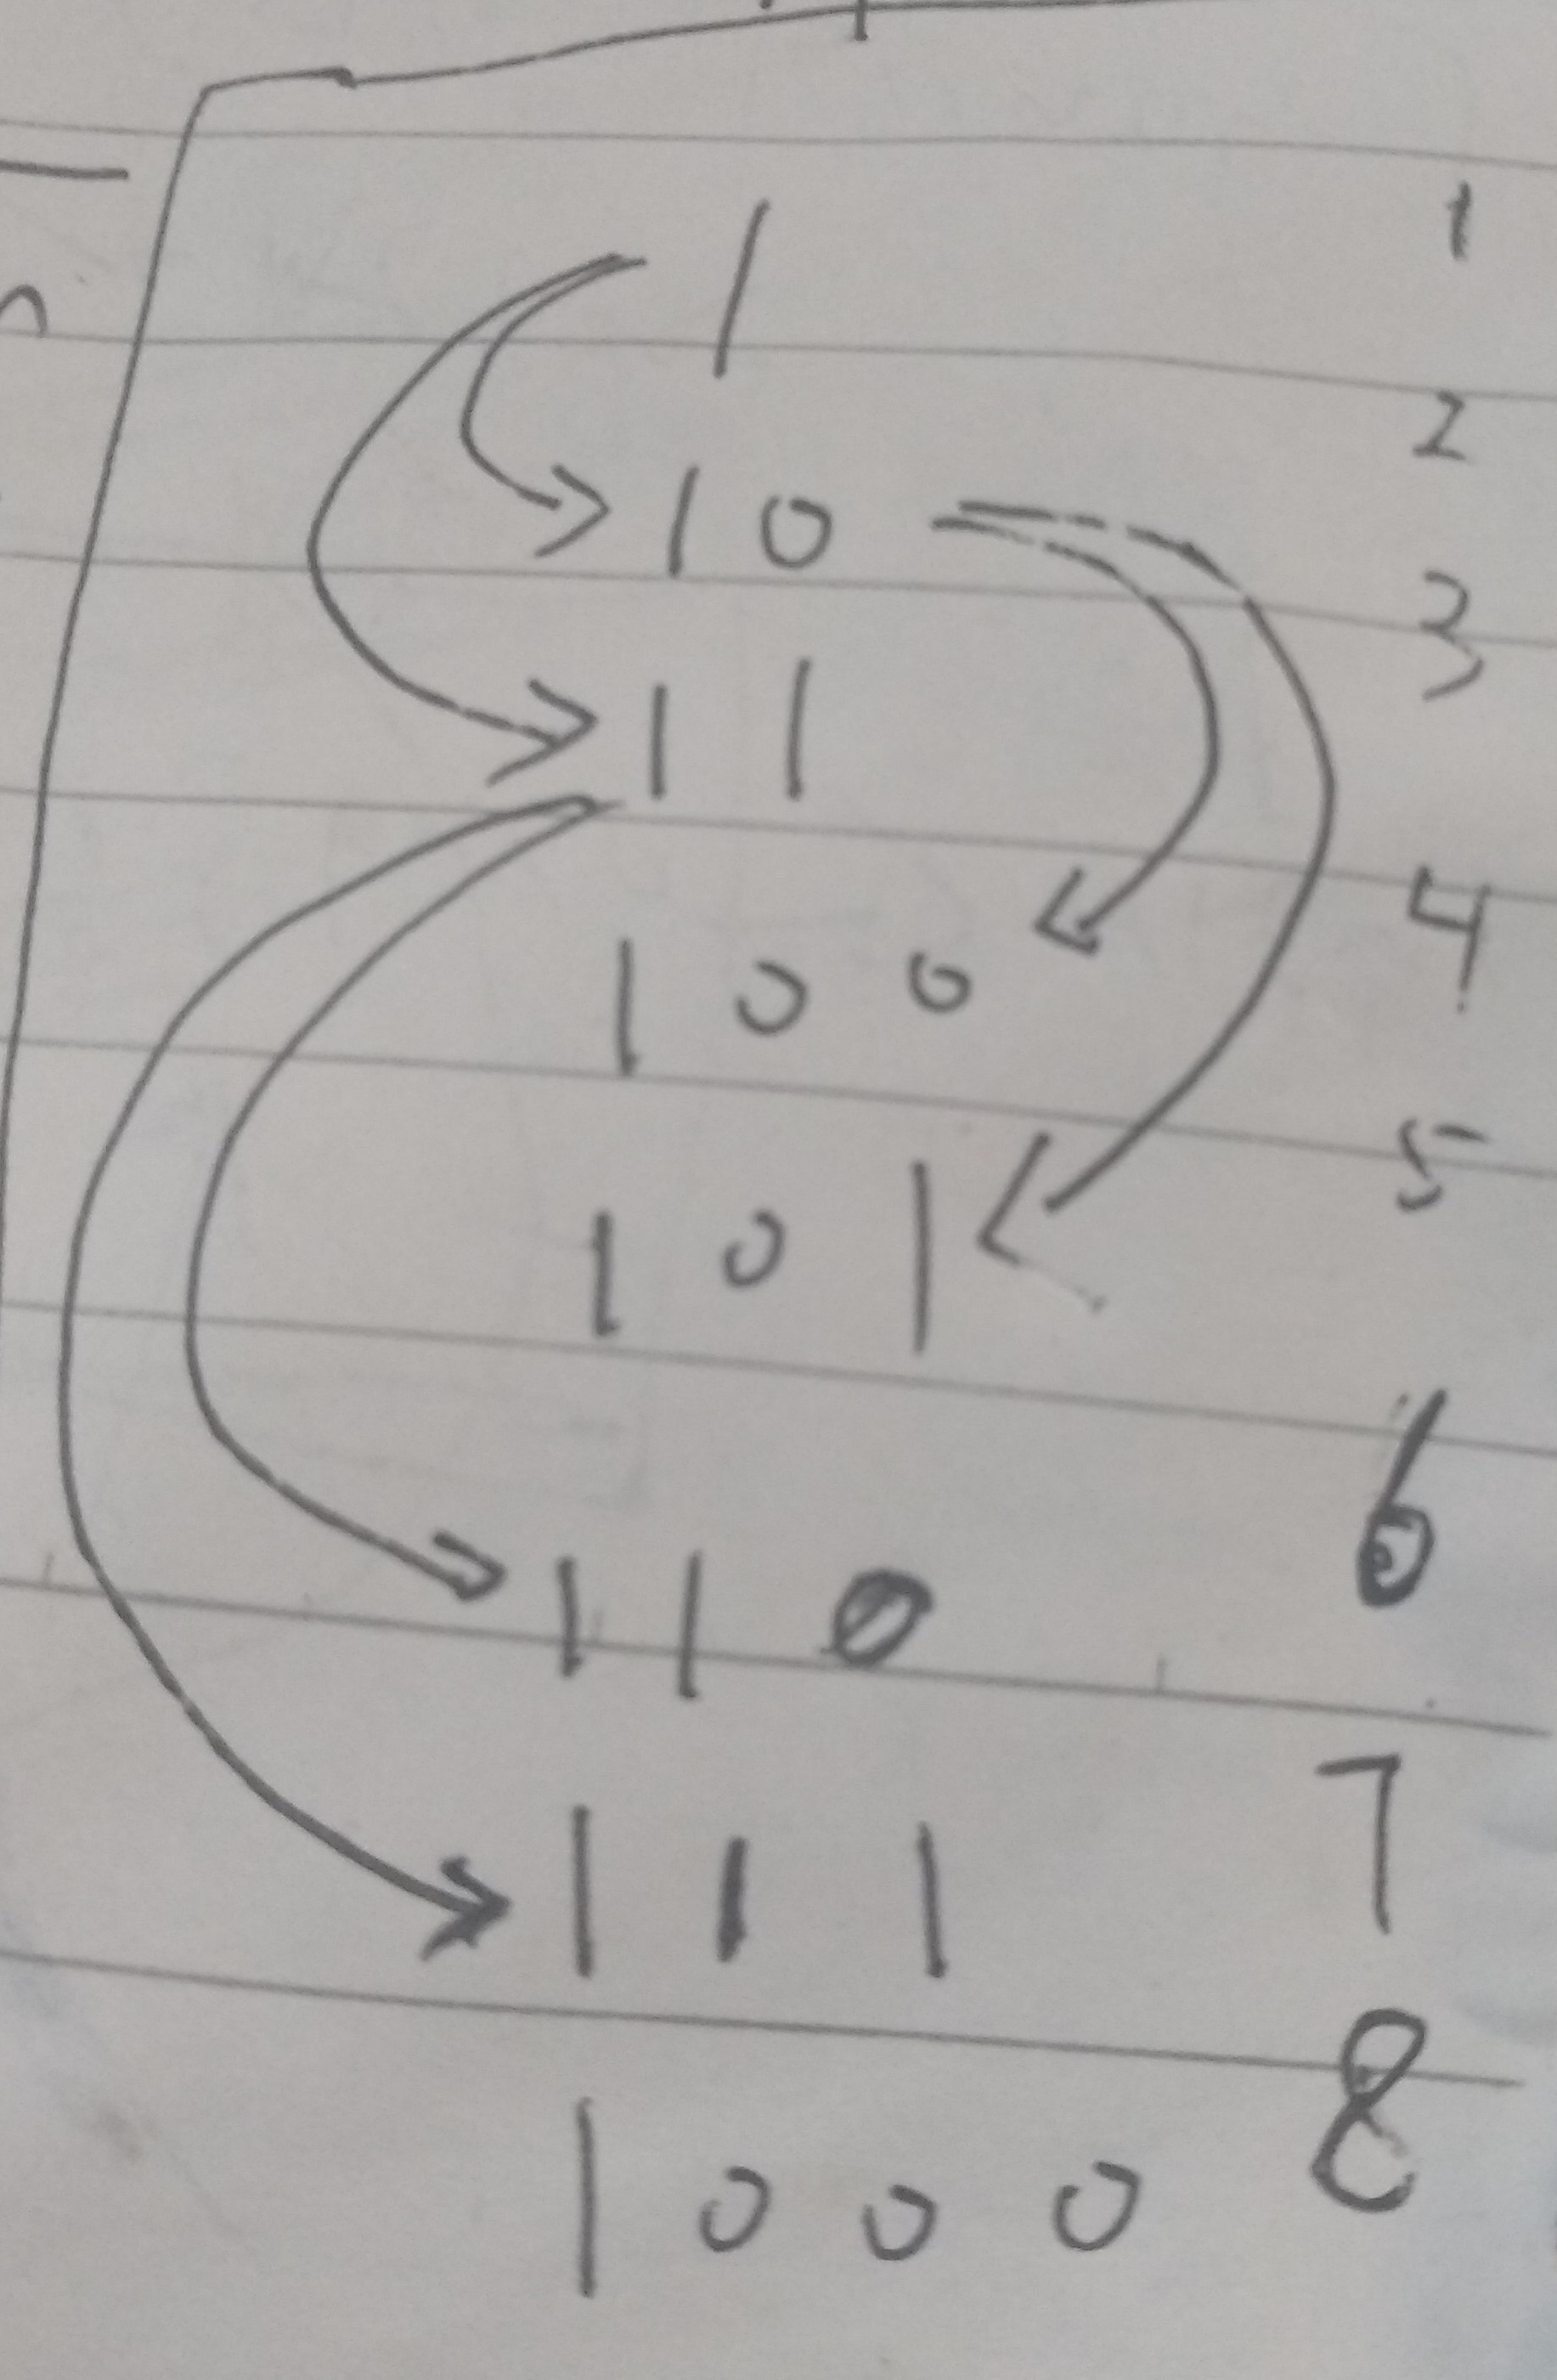 1 1
1 0 2
1 1 3
1 0 0 4
1 0 1 5
1 1 0 6
1 1 1 7
1 0 0 0 8